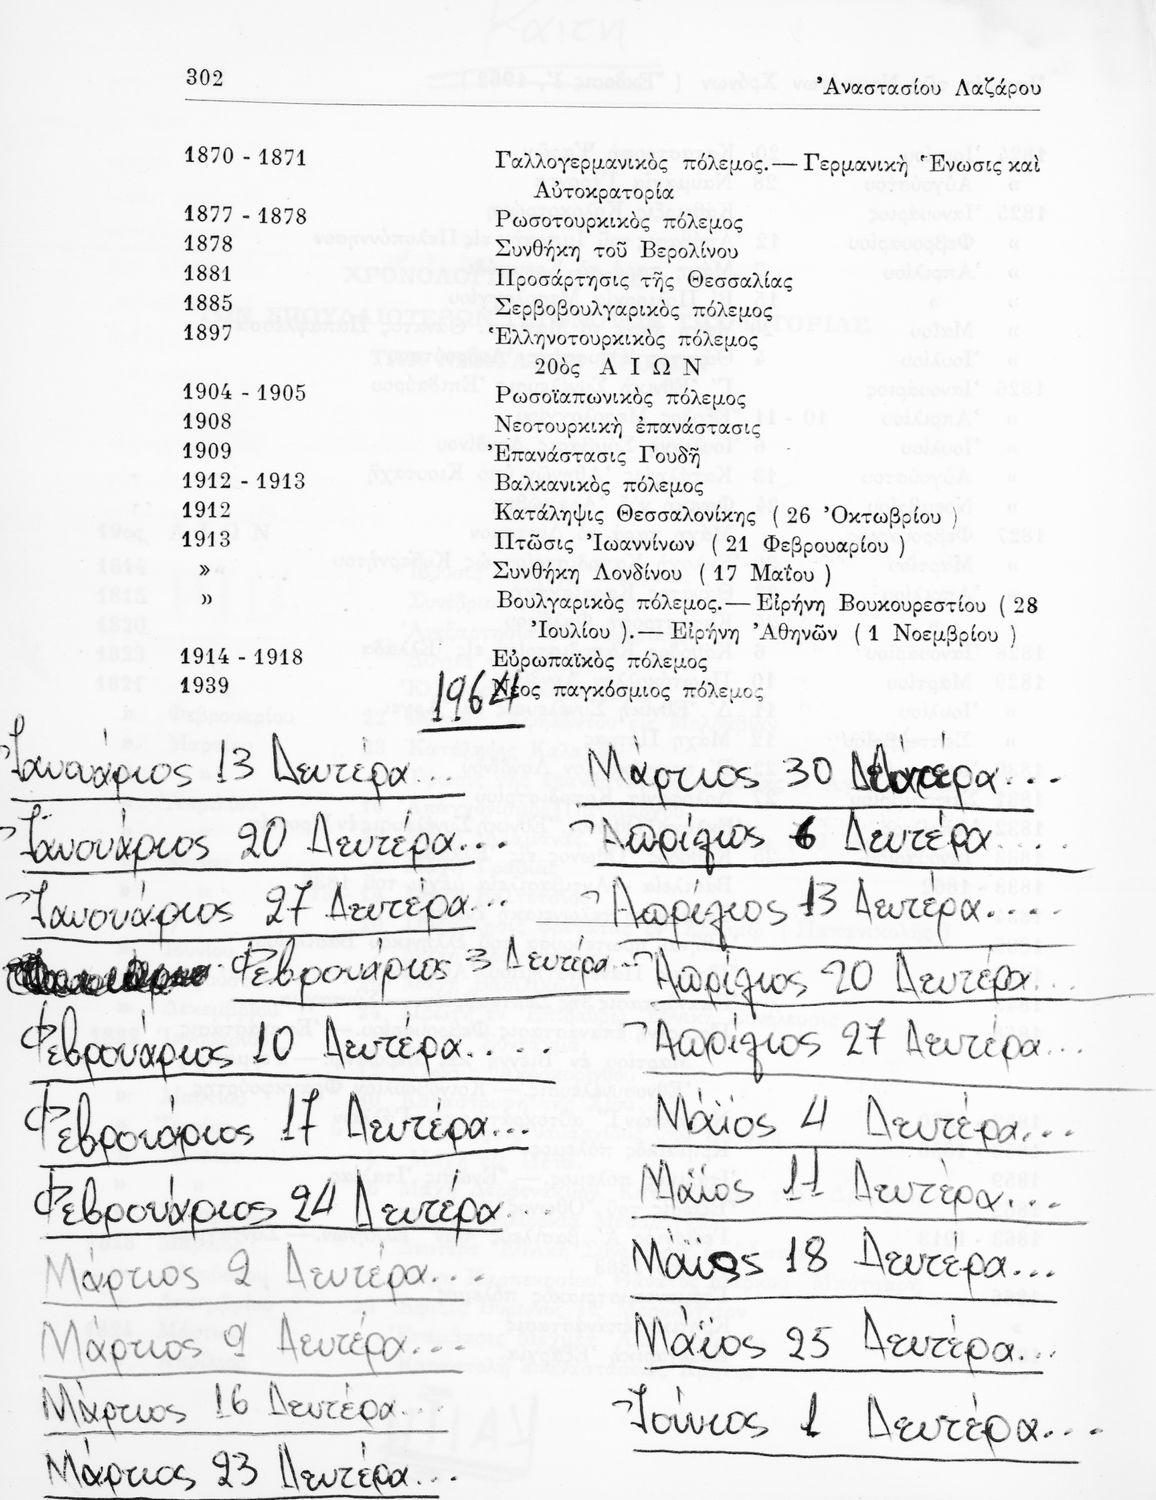 302 Ἀναστασίου Λαζάρου
1870 - 1871 Γαλλογερμανικὸς πόλεμος.— Γερμανικὴ Ἕνωσις καὶ
Αὐτοκρατορία
1877 - 1878 Ρωσοτουρκικὸς πόλεμος
1878 Συνθήκη τοῦ Βερολίνου
1881 Προσάρτησις τῆς Θεσσαλίας
1885 Σερβοβουλγαρικὸς πόλεμος
1897 Ἑλληνοτουρκικὸς πόλεμος
20ὸς ΑΙΩΝ
1904 - 1905 Ρωσοϊαπωνικὸς πόλεμος
1908 Νεοτουρκικὴ ἐπανάστασις
1909 Ἐπανάστασις Γουδῆ
1912 - 1913 Βαλκανικὸς πόλεμος
1912 Κατάληψις Θεσσαλονίκης ( 26 Ὀκτωβρίου )
1913 Πτῶσις Ἰωαννίνων ( 21 Φεβρουαρίου )
» Συνθήκη Λονδίνου ( 17 Μαΐου )
» Βουλγαρικὸς πόλεμος.— Εἰρήνη Βουκουρεστίου ( 28
Ἰουλίου ).— Εἰρήνη Ἀθηνῶν ( 1 Νοεμβρίου )
1914 - 1918 Εὐρωπαϊκὸς πόλεμος
1939 Νέος παγκόσμιος πόλεμος
1964
Ἰανουάριος 13 Δευτέρα...
Ἰανουάριος 20 Δευτέρα...
Ἰανουάριος 27 Δευτέρα...
Φεβρουάριος 3 Δευτέρα...
Φεβρουάριος 10 Δευτέρα...
Φεβρουάριος 17 Δευτέρα...
Φεβρουάριος 24 Δευτέρα...
Μάρτιος 2 Δευτέρα...
Μάρτιος 9 Δευτέρα...
Μάρτιος 16 Δευτέρα...
Μάρτιος 23 Δευτέρα...
Μάρτιος 30 Δευτέρα...
Ἀπρίλιος 6 Δευτέρα....
Ἀπρίλιος 13 Δευτέρα....
Ἀπρίλιος 20 Δευτέρα...
Ἀπρίλιος 27 Δευτέρα...
Μάϊος 4 Δευτέρα...
Μάϊος 11 Δευτέρα...
Μάϊος 18 Δευτέρα...
Μάϊος 25 Δευτέρα...
Ἰούνιος 1 Δευτέρα...